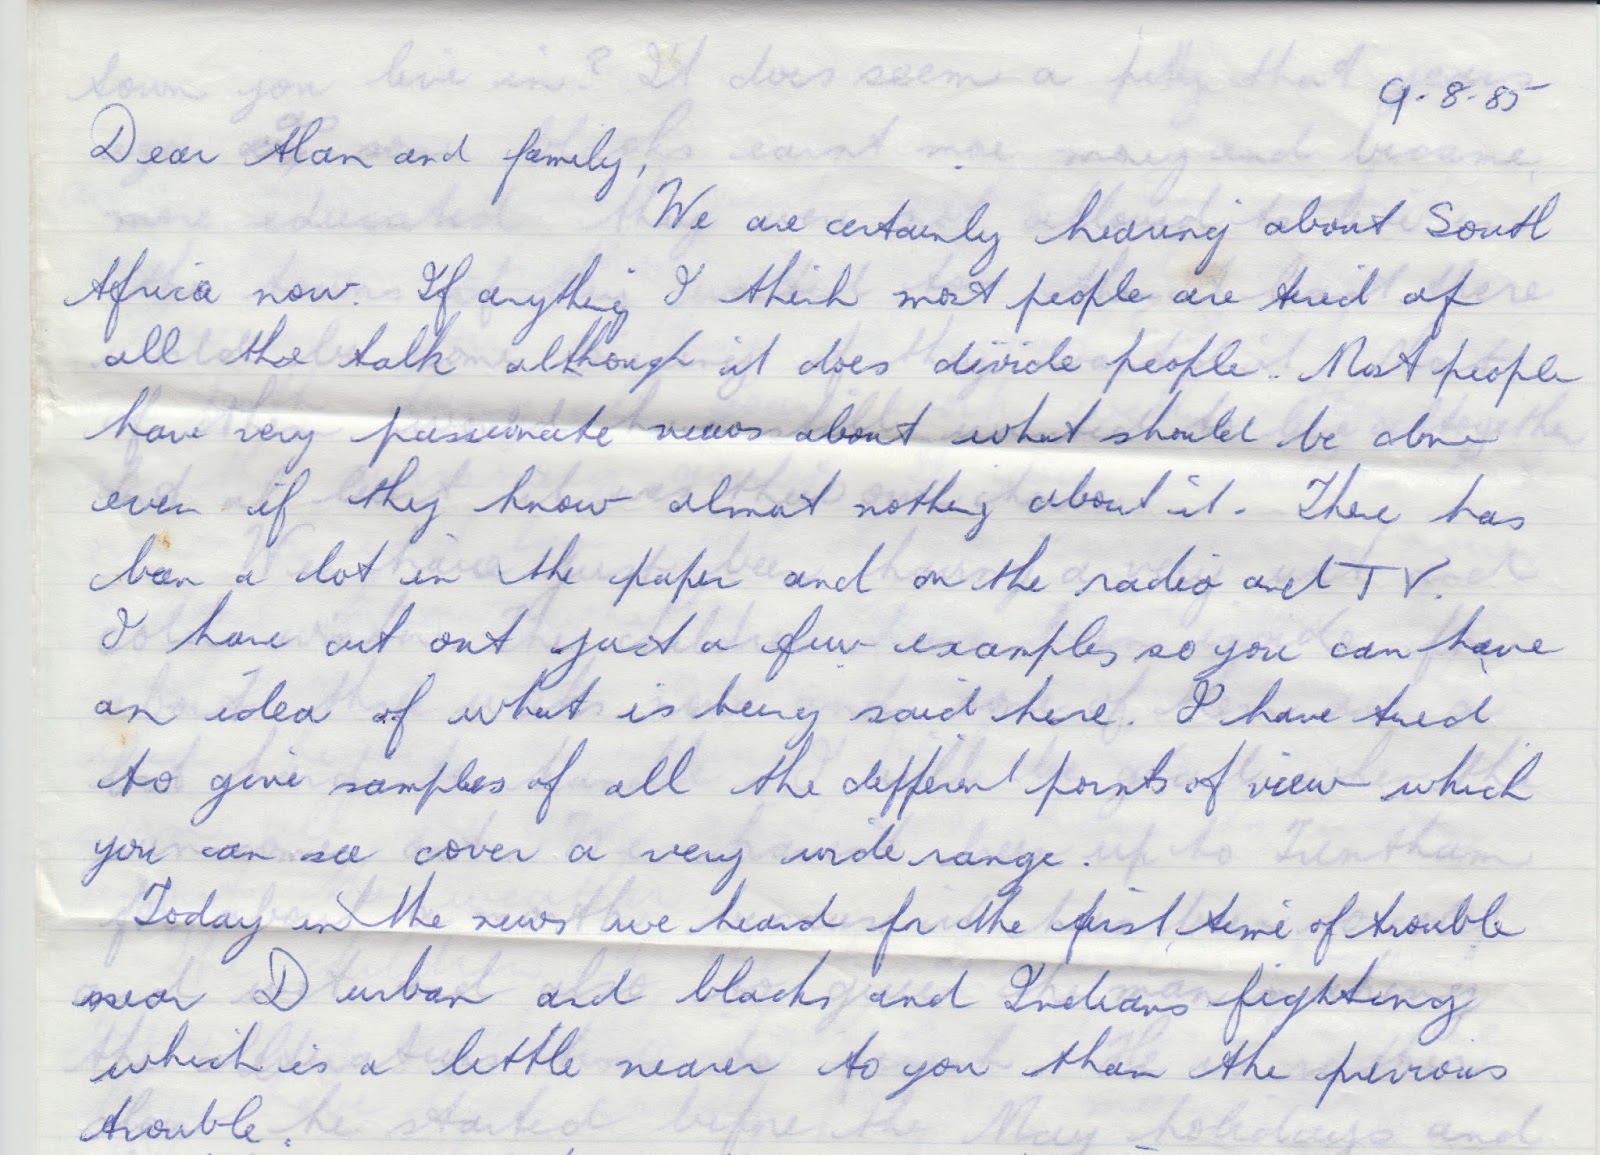 9-8-85
Dear Alan and family,
We are certainly hearing about South
Africa now. If anything I think most people are tired of
all the talk although it does divide people. Most people
have very passionate views about what should be done
even if they know almost nothing about it. There has
been a lot in the paper and on the radio and TV.
I have cut out just a few examples so you can have
an idea of what is being said here. I have tried
to give samples of all the different points of view which
you can see cover a very wide range.
Today in the news we heard for the first time of trouble
near Durban and blacks and Indians fighting
which is a little nearer to you than the previous
trouble.